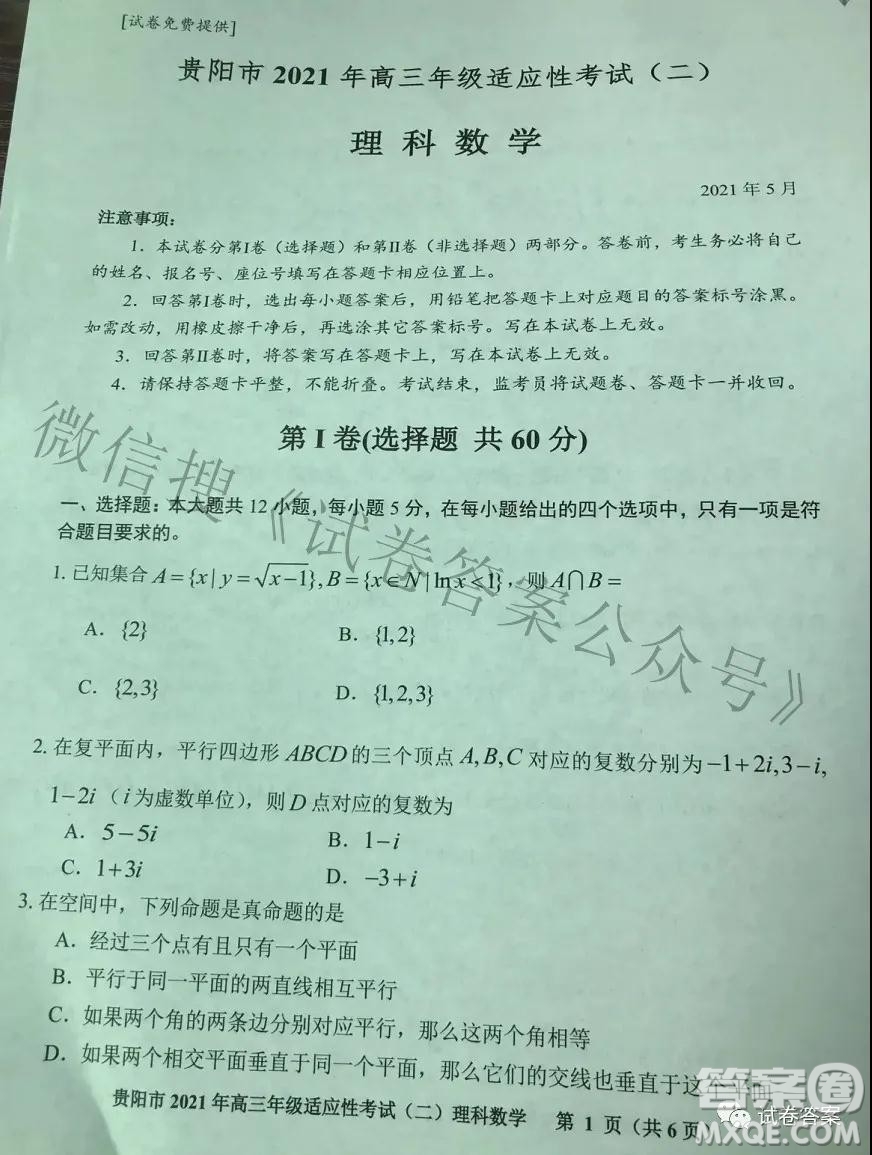 [试卷免费提供]
贵阳市 2021 年高三年级适应性考试（二）
理 科 数 学
2021 年 5 月
注意事项：
1．本试卷分第I卷（选择题）和第II卷（非选择题）两部分。答卷前，考生务必将自己
的姓名、报名号、座位号填写在答题卡相应位置上。
2．回答第I卷时，选出每小题答案后，用铅笔把答题卡上对应题目的答案标号涂黑。
如需改动，用橡皮擦干净后，再选涂其它答案标号。写在本试卷上无效。
3．回答第II卷时，将答案写在答题卡上，写在本试卷上无效。
4．请保持答题卡平整，不能折叠。考试结束，监考员将试题卷、答题卡一并收回。
第 I 卷(选择题 共 60 分)
一、选择题：本大题共 12 小题，每小题 5 分，在每小题给出的四个选项中，只有一项是符
合题目要求的。
1. 已知集合 A={x|y=√(x−1)},B={x∈N|ln x<1}，则 A∩B=
A．{2} B．{1,2}
C．{2,3} D．{1,2,3}
2. 在复平面内，平行四边形 ABCD 的三个顶点 A,B,C 对应的复数分别为 −1+2i,3−i,
1−2i（i 为虚数单位），则 D 点对应的复数为
A．5−5i B．1−i
C．1+3i D．−3+i
3. 在空间中，下列命题是真命题的是
A．经过三个点有且只有一个平面
B．平行于同一平面的两直线相互平行
C．如果两个角的两条边分别对应平行，那么这两个角相等
D．如果两个相交平面垂直于同一个平面，那么它们的交线也垂直于这个平面
贵阳市 2021 年高三年级适应性考试（二）理科数学 第 1 页（共 6 页）
微信搜《试卷答案公众号》
答案圈
试卷答案
MXQE.COM